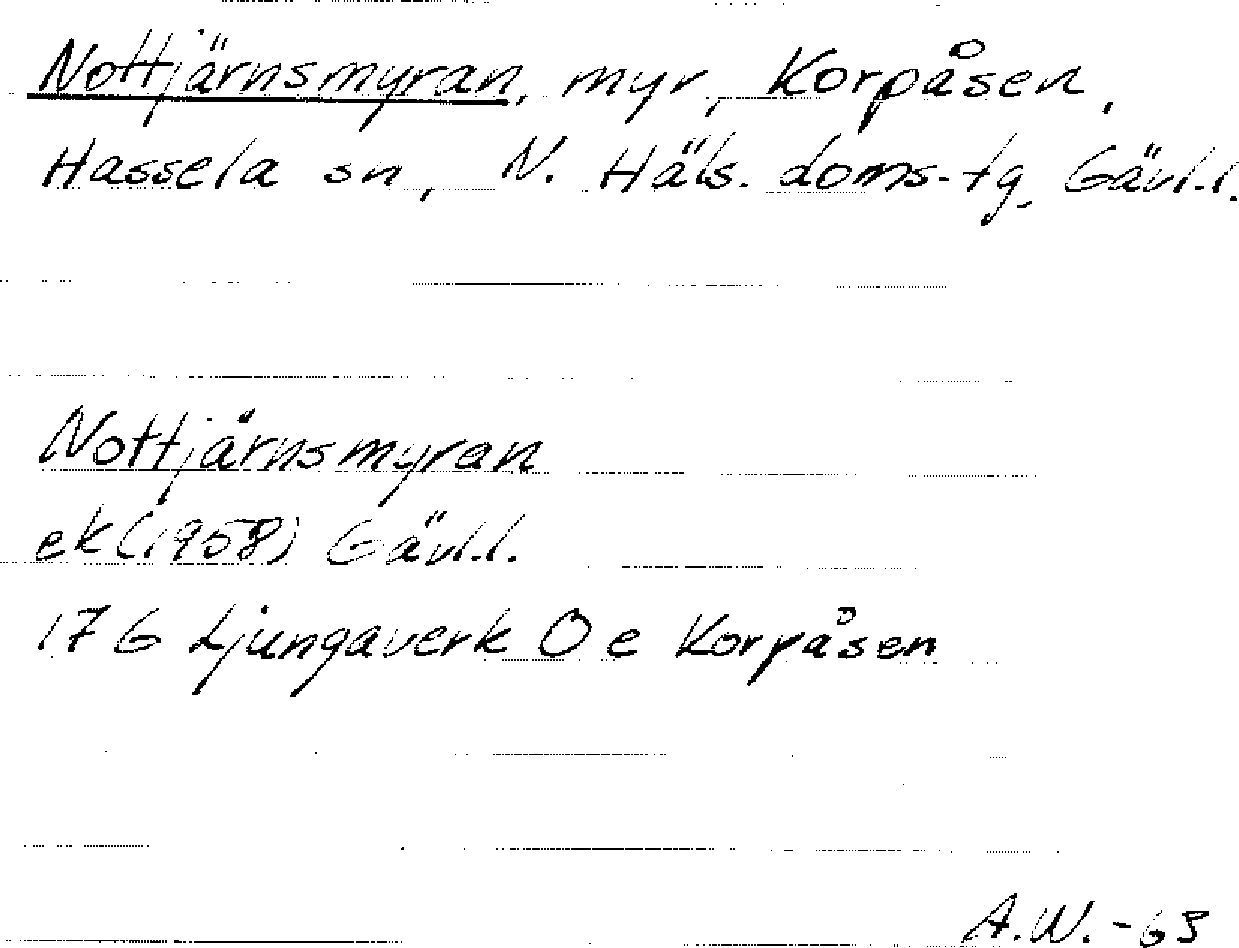 Nottjärnsmyran, myr, Korpåsen,
Hassela sn, N. Häls. doms-tg, Gävl.l.
Nottjärnsmyran
ek (1958) Gävl.l.
17G Ljungaverk O e Korpåsen
A.W. -63